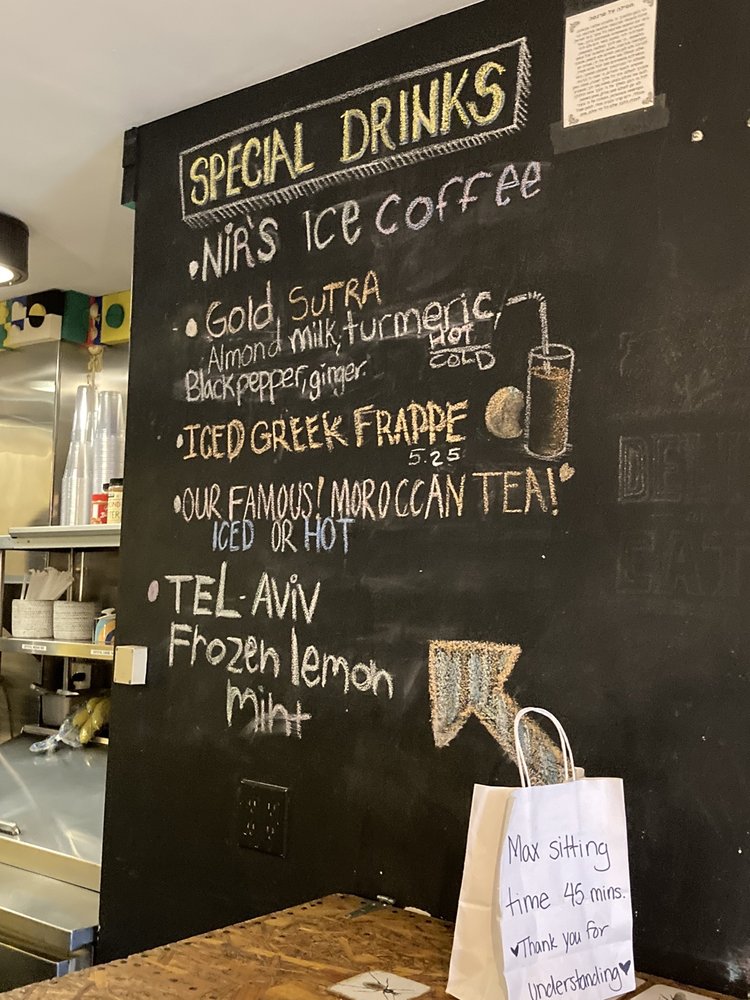 SPECIAL DRINKS
• NIR'S ICE COFFEE
• Gold SUTRA
Almond milk, turmeric,
Black pepper, ginger.
HOT
COLD
• ICED GREEK FRAPPE
5.25
• OUR FAMOUS! MOROCCAN TEA!
ICED OR HOT
• TEL-AViV
Frozen lemon
mint
Max sitting
time 45 mins.
♥Thank you for
understanding♥